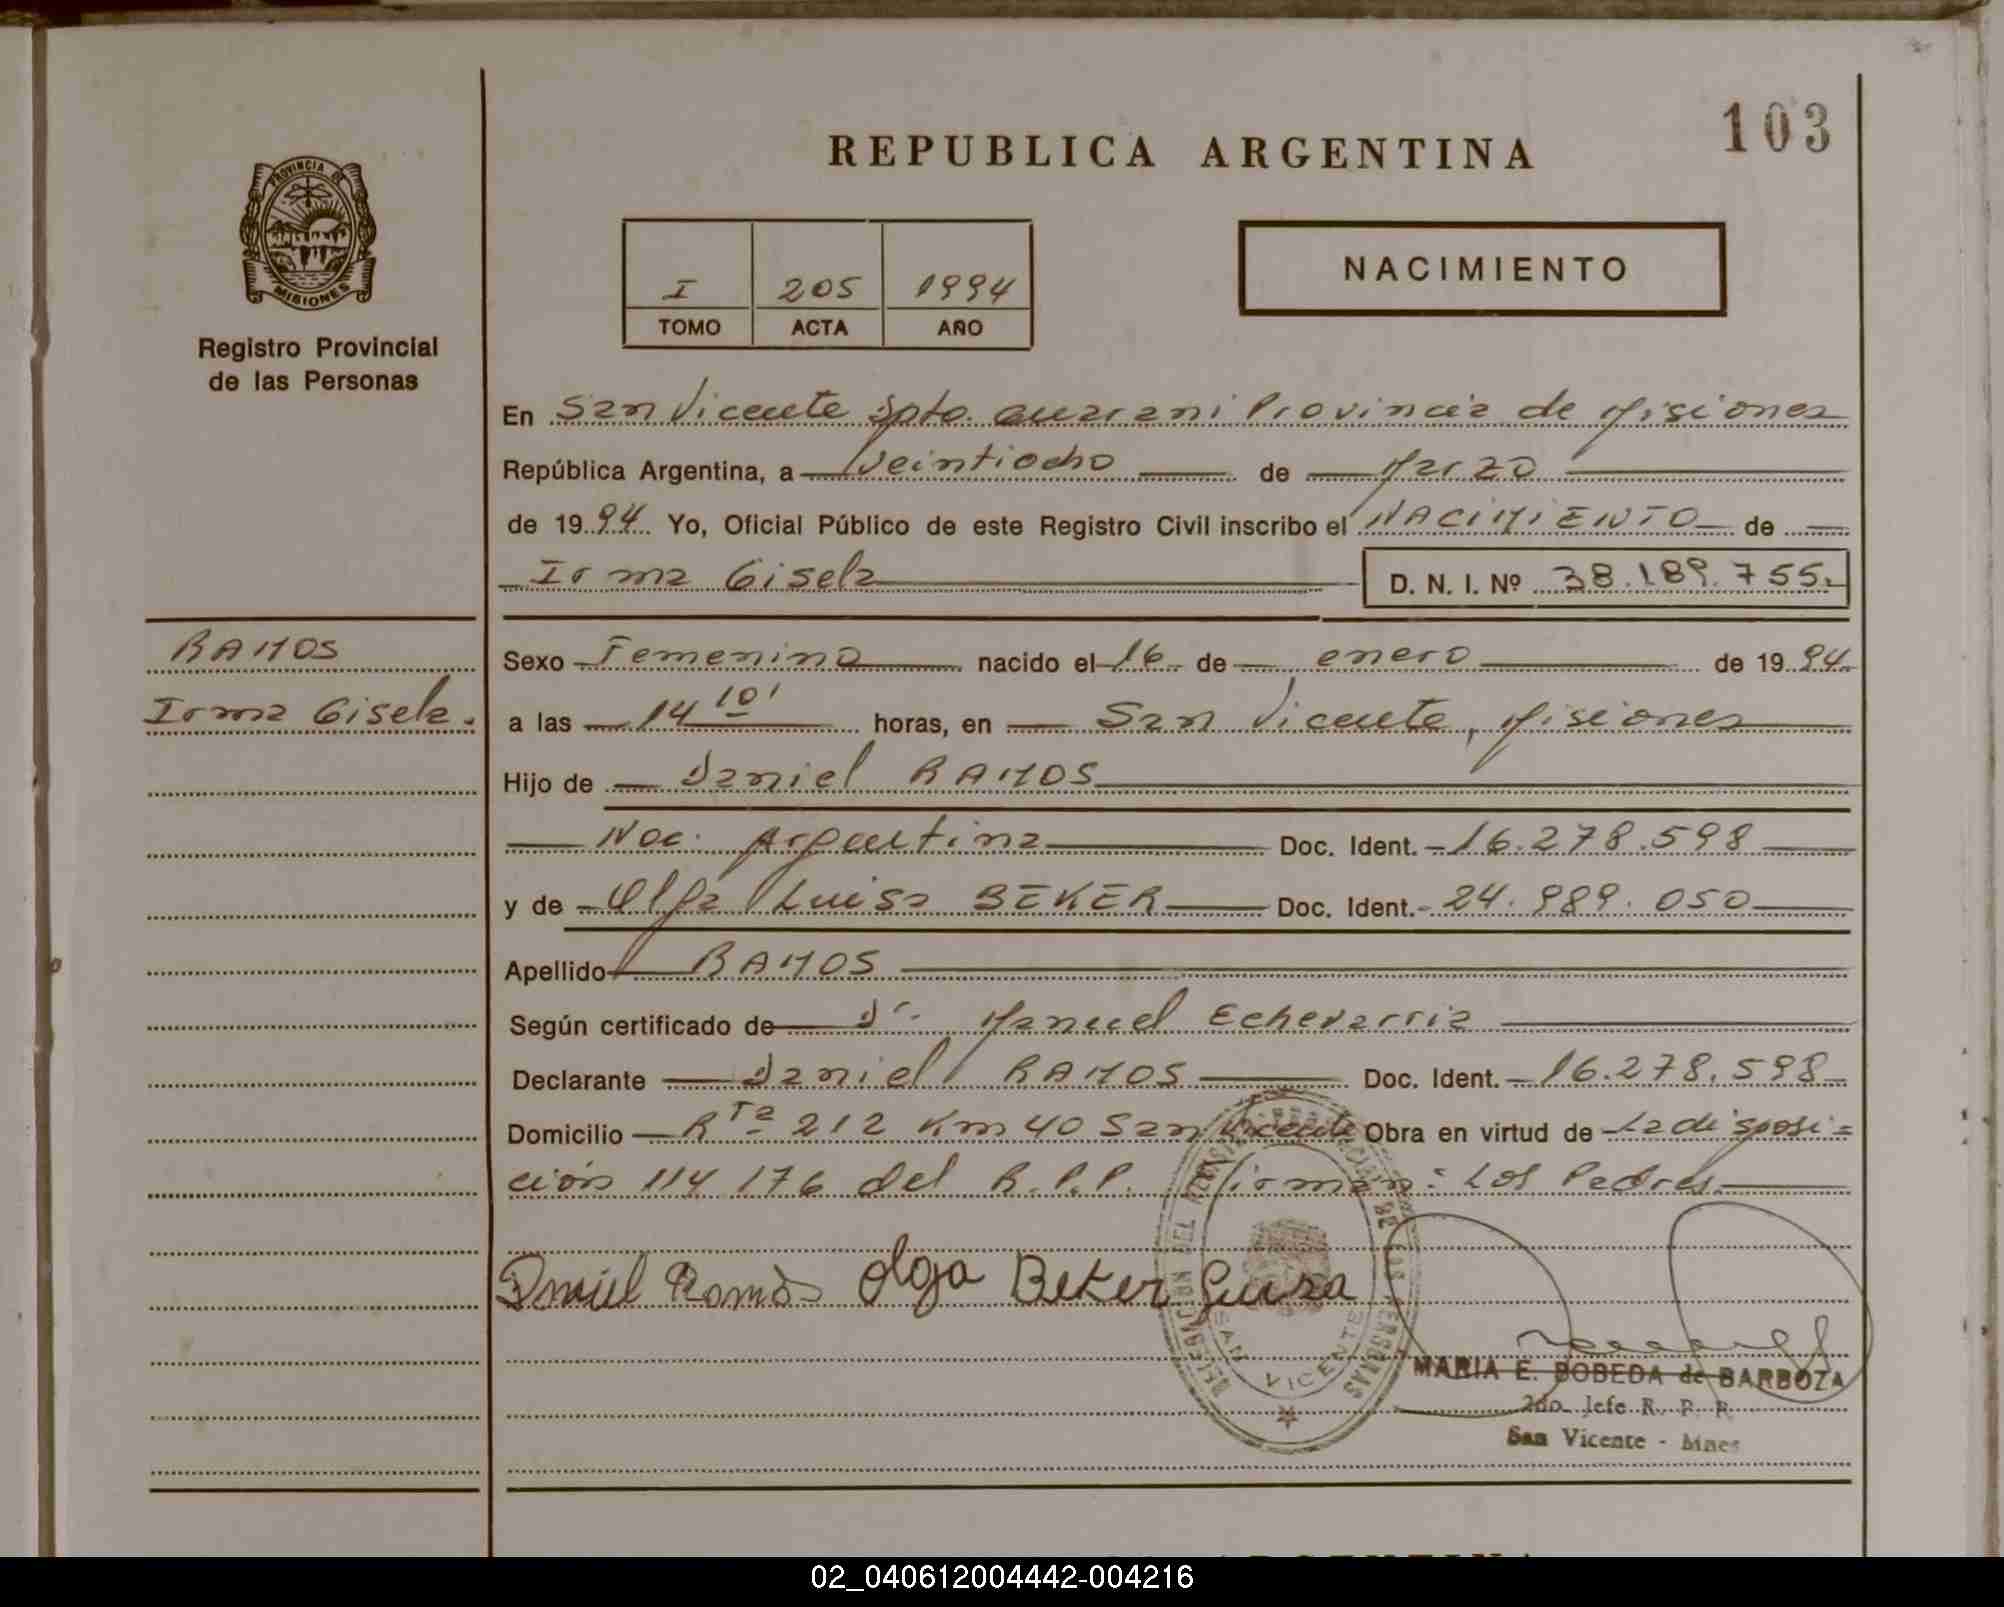 103
REPUBLICA ARGENTINA
PROVINCIA DE
MISIONES
Registro Provincial
de las Personas
NACIMIENTO
I 205 1994
TOMO ACTA AÑO
En San Vicente Dpto. Guarani Provincia de Misiones
República Argentina, a veintiocho de Marzo
de 1994 Yo, Oficial Público de este Registro Civil inscribo el NACIMIENTO de
Irma Gisela D. N. I. Nº 38.189.755.
RAMOS
Irma Gisela.
Sexo Femenino nacido el 16 de enero de 1994
a las 14 10' horas, en San Vicente, Misiones
Hijo de Daniel RAMOS
Nac. Argentina Doc. Ident. 16.278.598
y de Olga Luisa BEKER Doc. Ident. 24.989.050
Apellido RAMOS
Según certificado de Dr. Manuel Echevarria
Declarante Daniel RAMOS Doc. Ident. 16.278.598
Domicilio Rta 212 Km 40 San Vicente Obra en virtud de La disposi-
ción 114 176 del R.P.P. Firman: Los Padres.
Daniel Ramos Olga Beker Luisa
DELEGACION DEL REGISTRO PROVINCIAL DE LAS PERSONAS
SAN VICENTE
MARIA E. BOBEDA de BARBOZA
2do. Jefe R. P. P.
San Vicente - Mnes
02_040612004442-004216